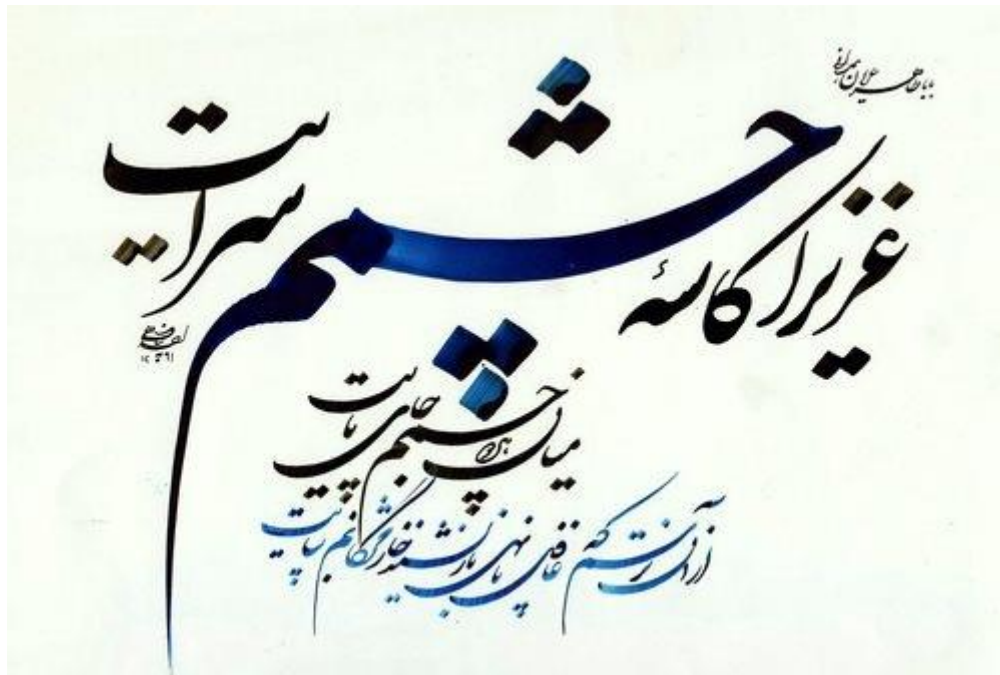 باباطاهر عریان همدانی
عزیزا کاسهٔ چشمم سرایت
میان هردو چشمم جای پایت
از آن ترسم که غافل پا نهی باز نشیند خار مژگانم بپایت